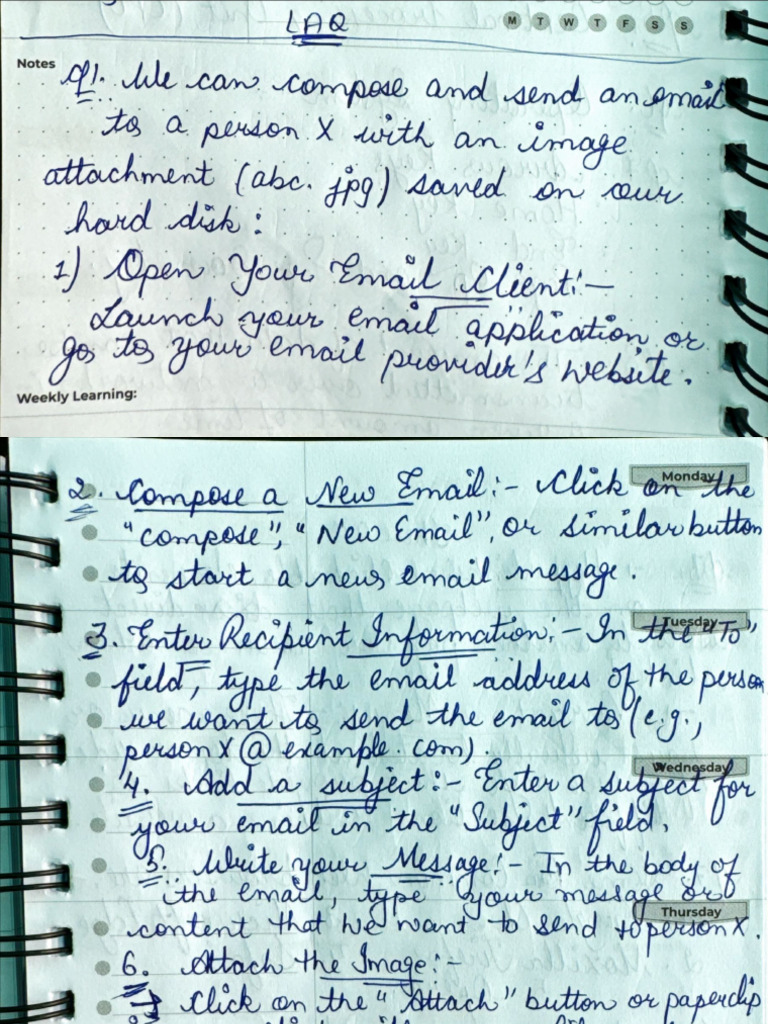 LAQ
M T W T F S S
Notes
Q1. We can compose and send an email
to a person X with an image
attachment (abc. jpg) saved on our
hard disk:
1) Open Your Email Client:-
Launch your email application or
go to your email provider's website.
Weekly Learning:
Monday
2. Compose a New Email:- Click on the
"compose", "New Email", or similar button
to start a new email message.
Tuesday
3. Enter Recipient Information:- In the "To"
field, type the email address of the person
we want to send the email to (e.g.,
person X @ example.com).
Wednesday
4. Add a subject:- Enter a subject for
your email in the "Subject" field.
5. Write your Message:- In the body of
the email, type your message or
Thursday
content that we want to send to person X.
6. Attach the Image:-
→ Click on the "Attach" button or paperclip